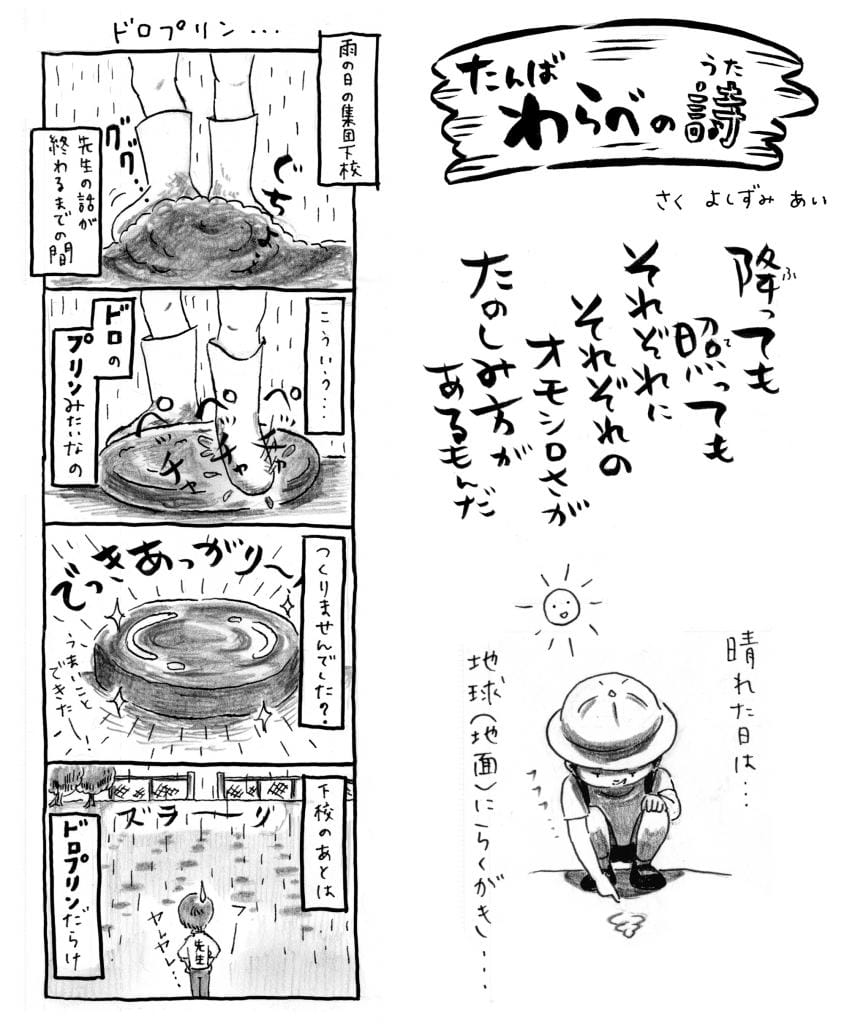 たんば
わらべの詩
うた
さく よしずみ あい
降っても
ふ
照っても
て
それぞれに
それぞれの
オモシロさが
たのしみ方が
あるもんだ
晴れた日は…
地球(地面)にらくがき…
ドロプリン…
雨の日の集団下校
先生の話が
終わるまでの間
グググ…
ぐちょ
こういう…
ドロの
プリンみたいなの
ペチャ
ペチャ
ペチャ
つくりませんでした?
できあっがり〜
うまいこと
できたー!
下校のあとは
ドロプリンだらけ
ズラーーリ
ヤレヤレ…
先生